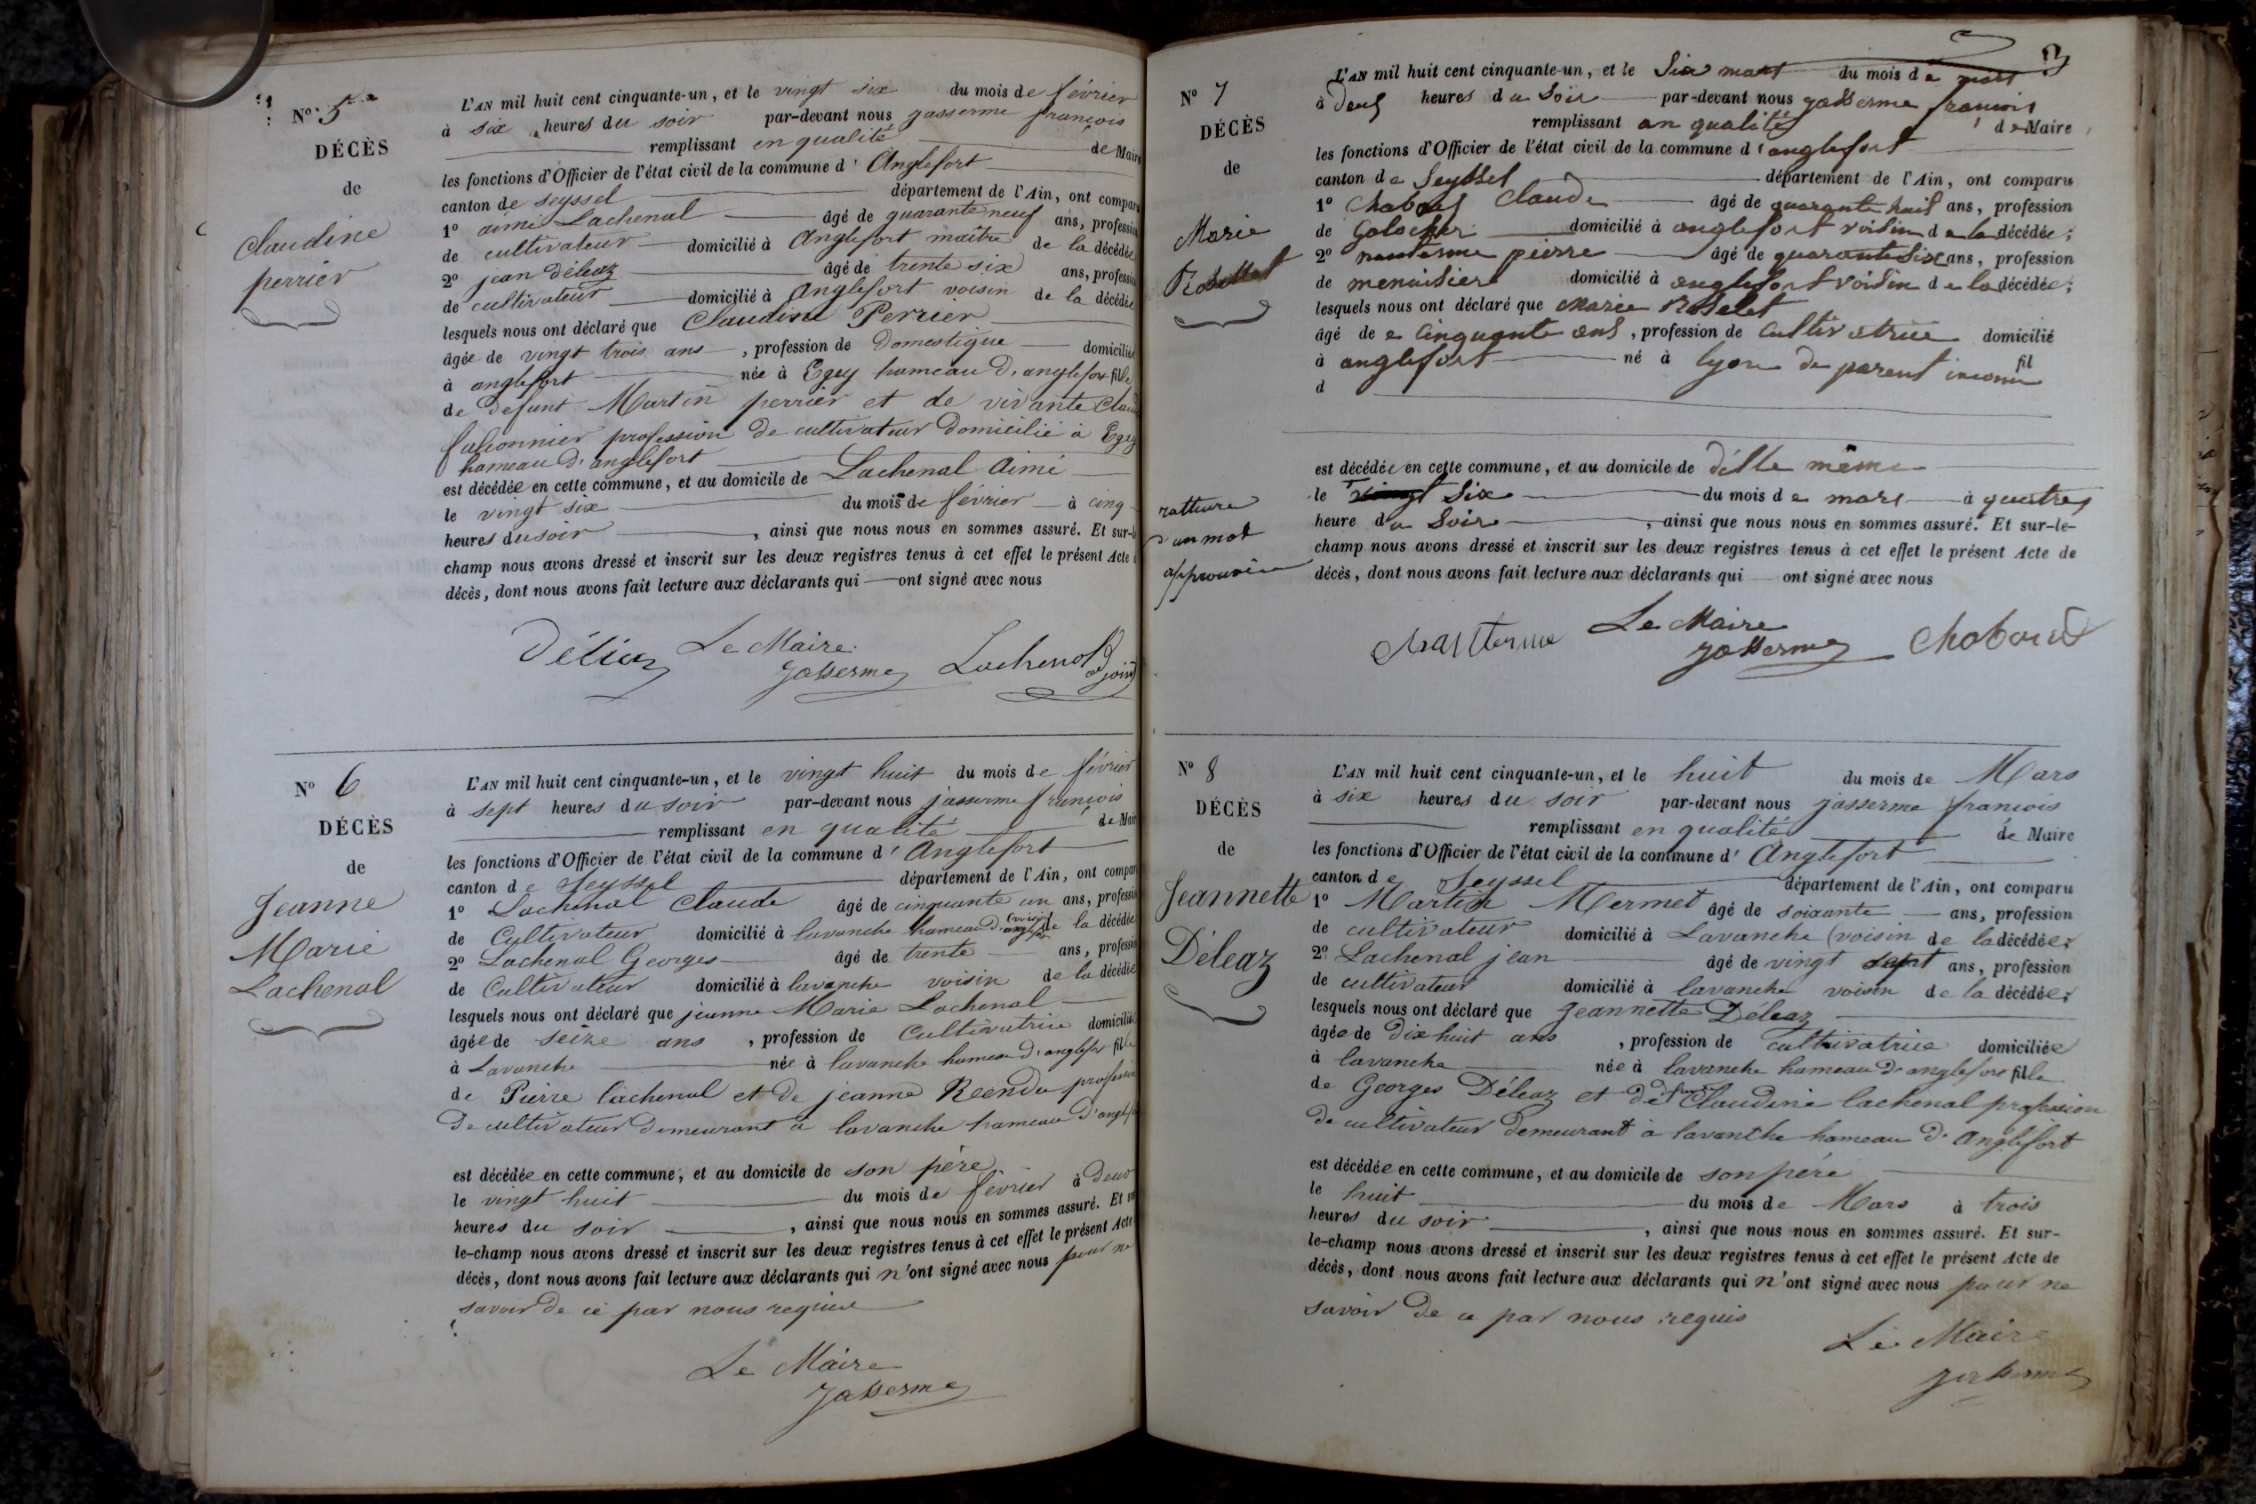 N° 5
DÉCÈS
de
Claudine
perrier
L'AN mil huit cent cinquante-un, et le vingt six du mois de février
à six heures du soir par-devant nous jasserme françois
remplissant en qualité de Maire
les fonctions d'Officier de l'état civil de la commune d'Anglefort
canton de seyssel département de l'Ain, ont comparu
1° aimé Lachenal âgé de quarante neuf ans, profession
de cultivateur domicilié à Anglefort maître de la décédée
2° jean déléaz âgé de trente six ans, profession
de cultivateur domicilié à Anglefort voisin de la décédée
lesquels nous ont déclaré que Claudine Perrier
âgée de vingt trois ans, profession de Domestique domiciliée
à anglefort née à Egey hameau d'anglefort fille
de defunt Martin perrier et de vivante
profession de cultivateur domicilié à Egey
hameau d'anglefort
est décédée en cette commune, et au domicile de Lachenal Aimé
le vingt six du mois de février à cinq
heures du soir, ainsi que nous nous en sommes assuré. Et sur-le
champ nous avons dressé et inscrit sur les deux registres tenus à cet effet le présent Acte
décès, dont nous avons fait lecture aux déclarants qui ont signé avec nous
Déléaz Le Maire Lachenal
Jasserme adjoint
N° 6
DÉCÈS
de
Jeanne
Marie
Lachenal
L'AN mil huit cent cinquante-un, et le vingt huit du mois de février
à sept heures du soir par-devant nous jasserme françois
remplissant en qualité de Maire
les fonctions d'Officier de l'état civil de la commune d'Anglefort
canton de Seyssel département de l'Ain, ont comparu
1° Lachenal Claude âgé de cinquante un ans, profession
de Cultivateur domicilié à lavanche hameau d'anglefort voisin de la décédée
2° Lachenal Georges âgé de trente ans, profession
de Cultivateur domicilié à lavanche voisin de la décédée
lesquels nous ont déclaré que jeanne Marie Lachenal
âgée de seize ans, profession de Cultivatrice domiciliée
à Lavanche née à lavanche hameau d'anglefort fille
de Pierre lachenal et de jeanne profession
de cultivateur demeurant à lavanche hameau d'anglefort
est décédée en cette commune, et au domicile de son père
le vingt huit du mois de février à deux
heures du soir, ainsi que nous nous en sommes assuré. Et sur
le-champ nous avons dressé et inscrit sur les deux registres tenus à cet effet le présent Acte
décès, dont nous avons fait lecture aux déclarants qui n'ont signé avec nous pour ne
savoir de ce par nous requis
Le Maire
Jasserme
N° 7
DÉCÈS
de
Marie
ratture
d'un mot
approuvée
L'AN mil huit cent cinquante-un, et le Six mars du mois de mars
à deux heures du Soir par-devant nous jasserme françois
remplissant en qualité de Maire
les fonctions d'Officier de l'état civil de la commune d'anglefort
canton de Seyssel département de l'Ain, ont comparu
1° Claude âgé de quarante huit ans, profession
de domicilié à anglefort voisin de la décédée;
2° nanterme pierre âgé de quarante Six ans, profession
de menuisier domicilié à anglefort voisin de la décédée;
lesquels nous ont déclaré que Marie
âgé de cinquante ans, profession de cultivatrice domicilié
à anglefort né à lyon de parent inconnu fil
d
est décédée en cette commune, et au domicile de d'elle même
le vingt Six du mois de mars à quatres
heure du Soir, ainsi que nous nous en sommes assuré. Et sur-le-
champ nous avons dressé et inscrit sur les deux registres tenus à cet effet le présent Acte de
décès, dont nous avons fait lecture aux déclarants qui ont signé avec nous
Nanterme Le Maire Chaboud
Jasserme
N° 8
DÉCÈS
de
Jeannette
Déleaz
L'AN mil huit cent cinquante-un, et le huit du mois de Mars
à six heures du soir par-devant nous jasserme françois
remplissant en qualité de Maire
les fonctions d'Officier de l'état civil de la commune d'Anglefort
canton de Seyssel département de l'Ain, ont comparu
1° Martin Mermet âgé de soixante ans, profession
de cultivateur domicilié à Lavanche voisin de la décédée;
2° Lachenal jean âgé de vingt sept ans, profession
de cultivateur domicilié à lavanche voisin de la décédée;
lesquels nous ont déclaré que Jeannette Déleaz
âgée de dix huit ans, profession de cultivatrice domiciliée
à lavanche née à lavanche hameau d'anglefort fille
de Georges Déleaz et de Claudine lachenal profession
de cultivateur demeurant à lavanche hameau d'Anglefort
est décédée en cette commune, et au domicile de son père
le huit du mois de Mars à trois
heures du soir, ainsi que nous nous en sommes assuré. Et sur-
le-champ nous avons dressé et inscrit sur les deux registres tenus à cet effet le présent Acte de
décès, dont nous avons fait lecture aux déclarants qui n'ont signé avec nous pour ne
savoir de ce par nous requis
Le Maire
Jasserme